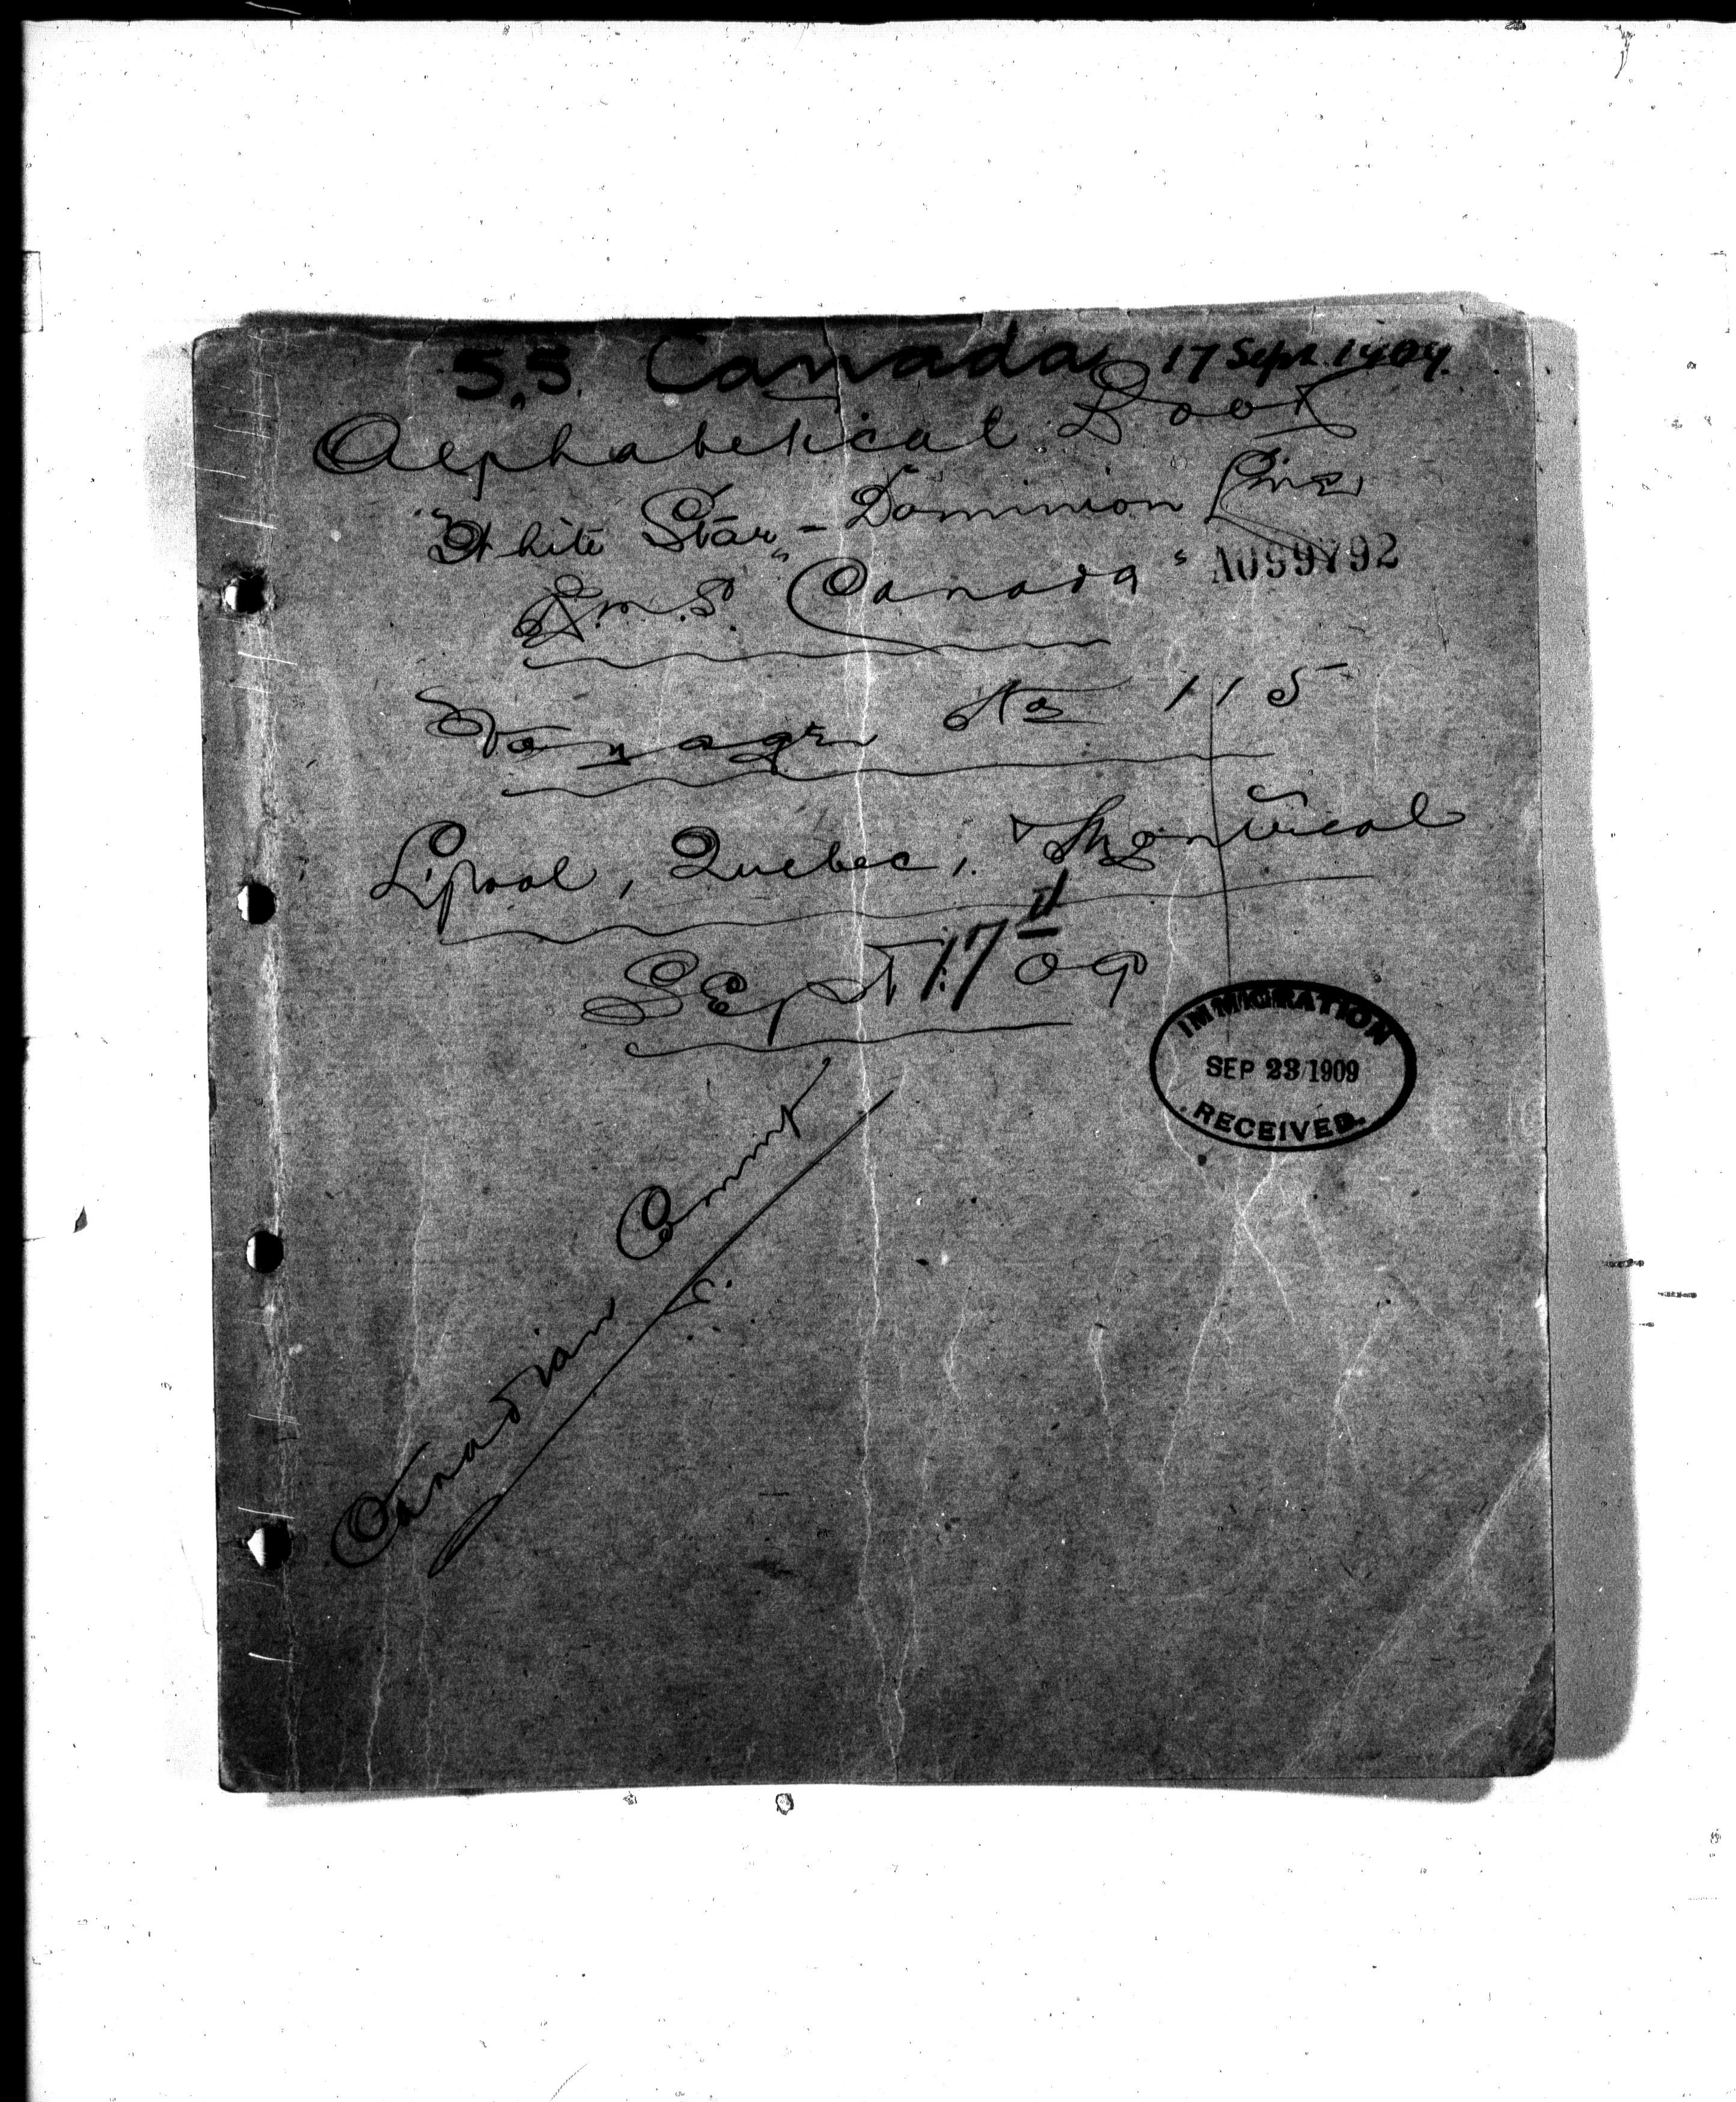 S.S. Canada 17 Sept. 1909.
Alphabetical Book
"White Star - Dominion Line"
R.M.S. "Canada"
A099792
Voyage No 115
L'pool, Quebec, & Montreal
Sept 17th 09
IMMIGRATION
SEP 23 1909
RECEIVED.
Canadian